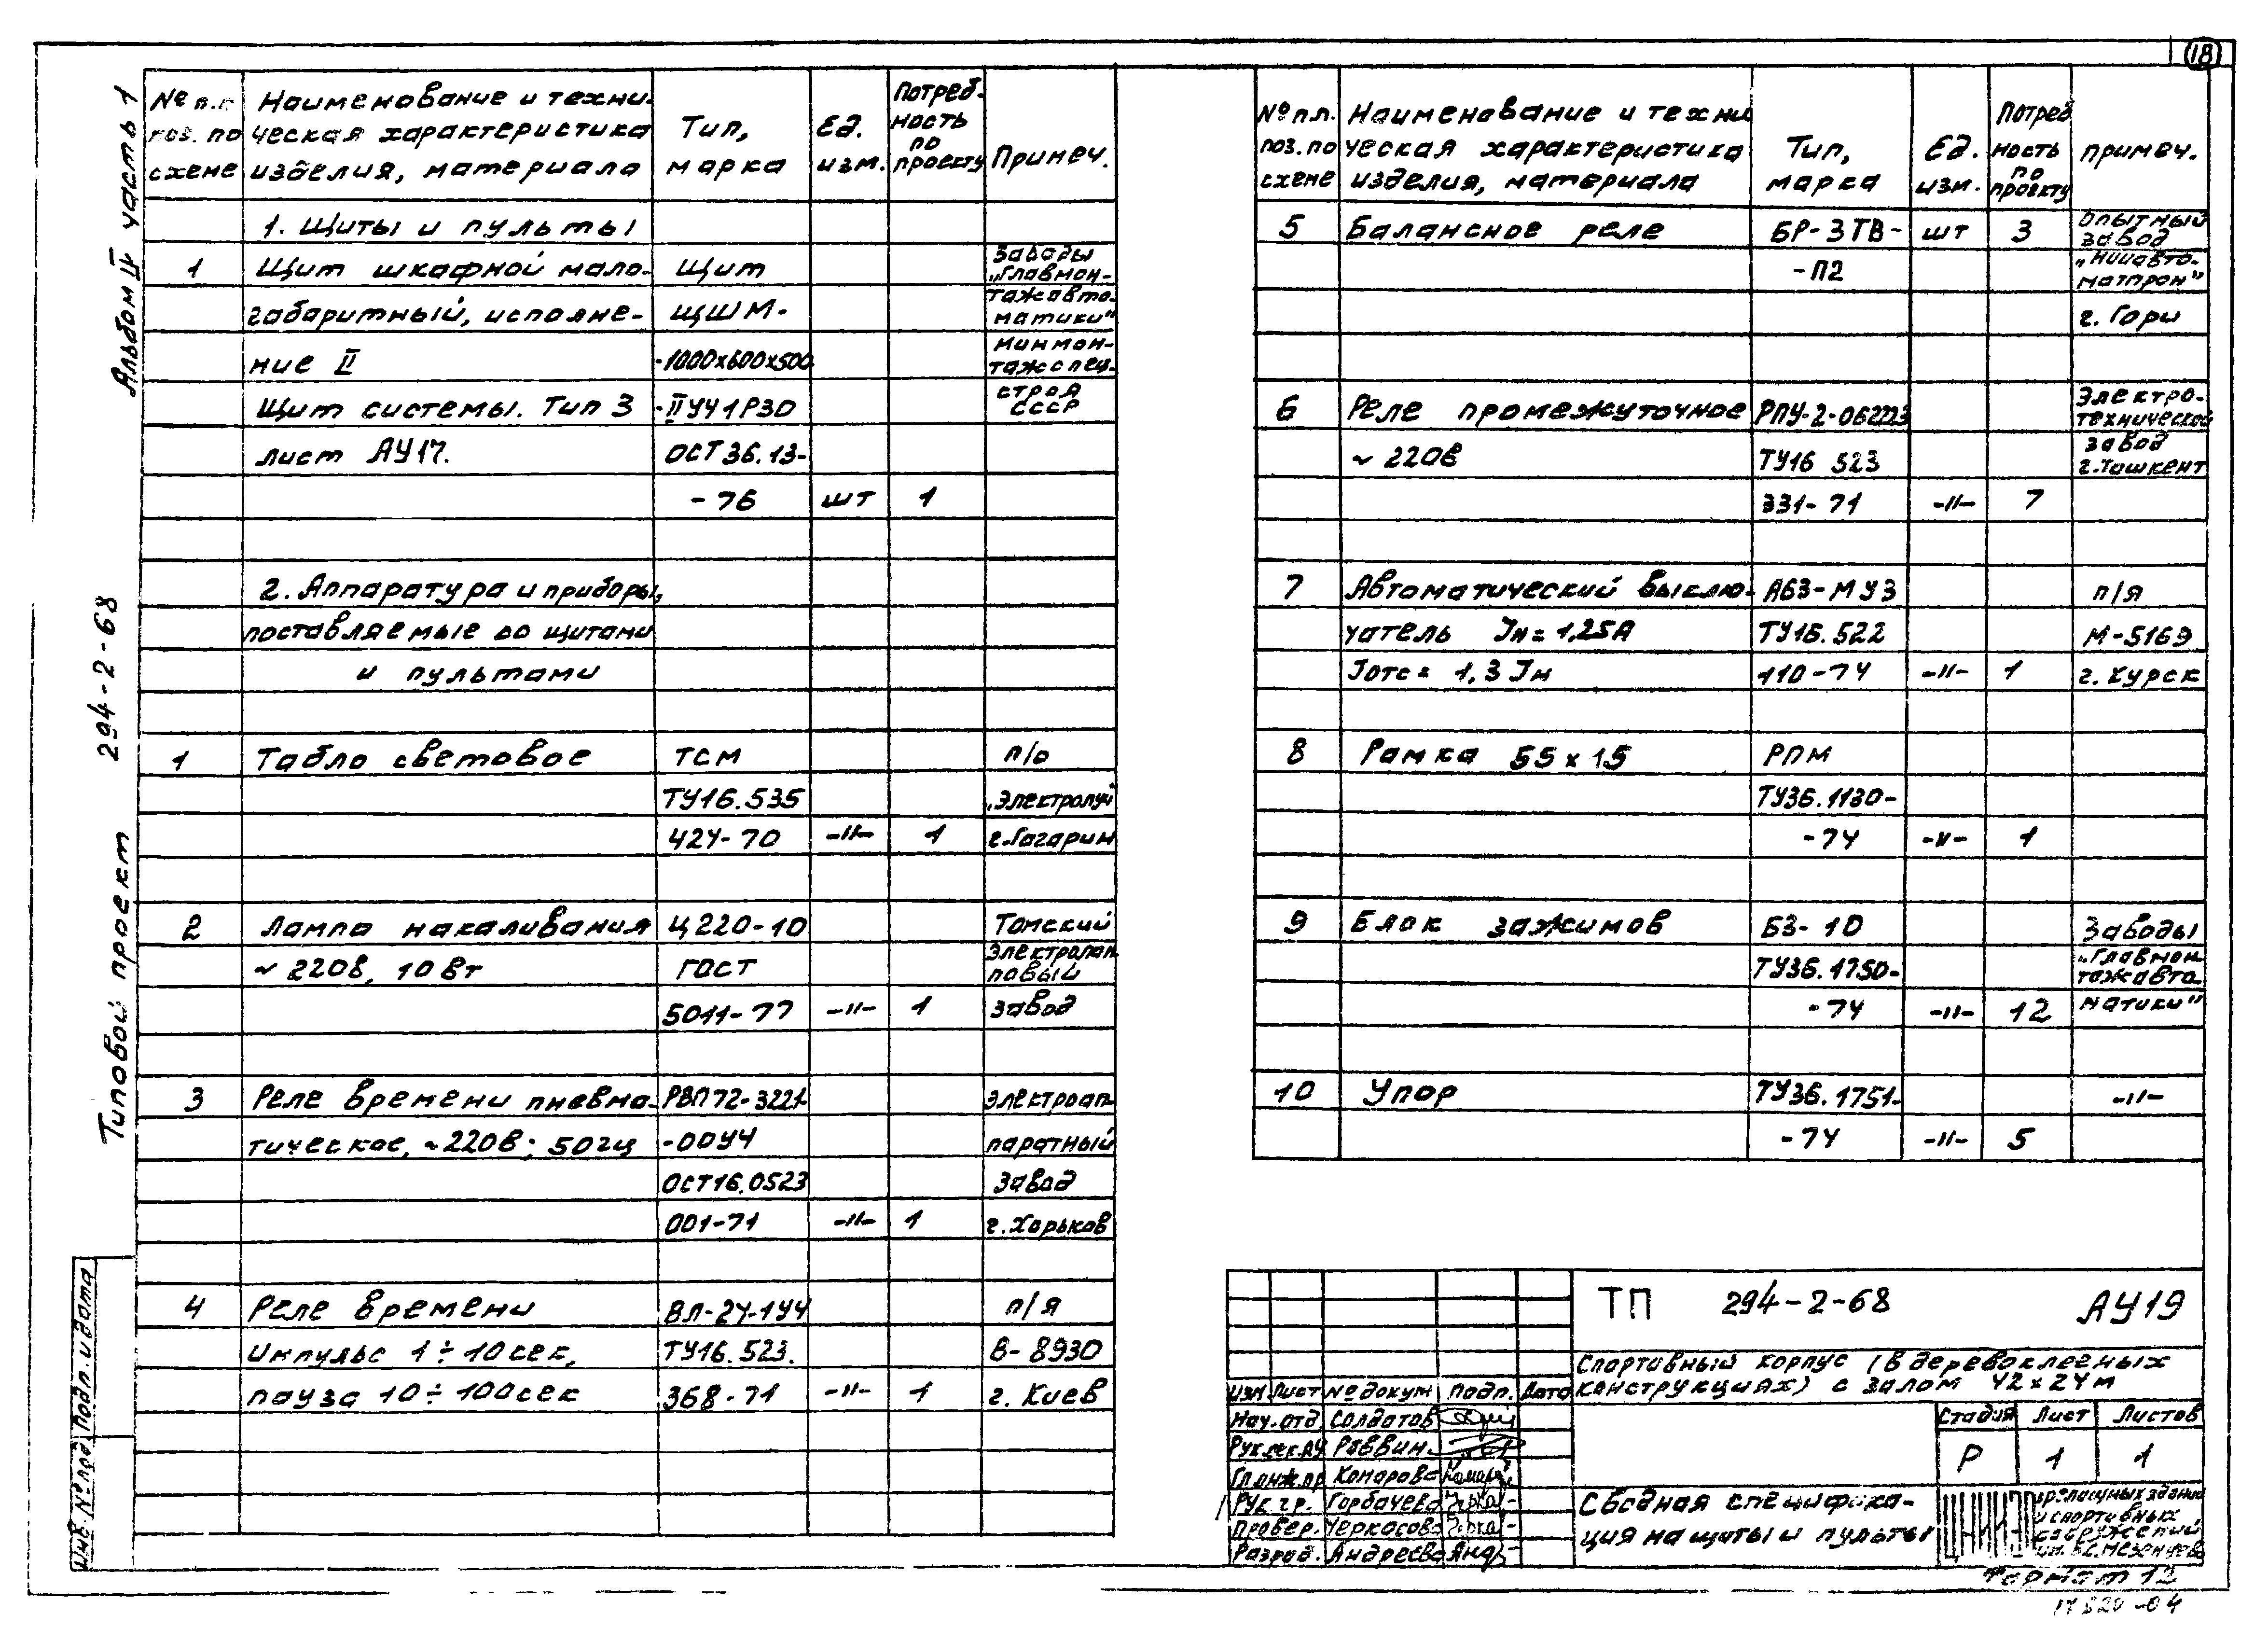 18
Альбом II часть 1
Типовой проект 294-2-68
Инв. № под. Подп. и дата
№ п.п. поз. по схене
Наименование и техни-
ческая характеристика
изделия, материала
Тип, марка
Ед. изм.
Потреб-
ность
по
проекту
Примеч.
1. Щиты и пульты
1 Щит шкафной мало- Щит Заводы „Главмон-
габаритный, исполне- ЩШМ- тажавто- матики"
ние II -1000х600х500 минмон- тажспец-
Щит системы. Тип 3 -IIУЧ1Р30 строя СССР
лист АУ17. ОСТ36.13-
-76 шт 1
2. Аппаратура и приборы,
поставляемые со щитами
и пультами
1 Табло световое ТСМ п/о
ТУ16.535 „Электролуч
424-70 -"- 1 г.Гагарин
2 Лампа накаливания Ц220-10 Томский
~220в, 10вт ГОСТ Электролам- повый
5011-77 -"- 1 завод
3 Реле времени пневма- РВП72-3221- Электроап-
тическое, ~220в; 50гц -00У4 паратный
ОСТ16.0523 завод
001-71 -"- 1 г.Харьков
4 Реле времени ВЛ-24-1У4 п/я
импульс 1÷10сек, ТУ16.523. В-8930
пауза 10÷100сек 368-71 -"- 1 г. Киев
№ п.п. поз. по схене
Наименование и техни
ческая характеристика
изделия, материала
Тип, марка
Ед. изм.
Потреб
ность
по
проекту
примеч.
5 Балансное реле БР-3ТВ- шт 3 Опытный завод
-П2 „Нииавто- матпром"
г. Гори
6 Реле промежуточное РПУ-2-062223 Электро- технический
~220в ТУ16 523 завод г.Ташкент
331-71 -"- 7
7 Автоматический выклю- А63-МУ3 п/я
чатель Jн=1,25А ТУ16.522 М-5169
Jотс= 1,3 Jн 110-74 -"- 1 г. Курск
8 Рамка 55х15 РПМ
ТУ36.1130-
-74 -"- 1
9 Блок зажимов БЗ-10 Заводы
ТУ36.1750- „Главмон тажавто
-74 -"- 12 матики"
10 Упор ТУ36.1751- -"-
-74 -"- 5
ТП 294-2-68 АУ19
Спортивный корпус (в деревоклееных
конструкциях) с залом 42х24м
Изм Лист № докум Подп. Дата
Нач.отд. Солдатов
Рук.сек.АУ Раввин
Гл.инж.пр Комарова
Рук.гр. Горбачева
Провер. Черкасова
Разраб. Андреева
Стадия Лист Листов
Р 1 1
Сводная специфика-
ция на щиты и пульты
зданий
и спортивных
сооружений
им. Б.С. Мезенцева
Формат 12
17820-04